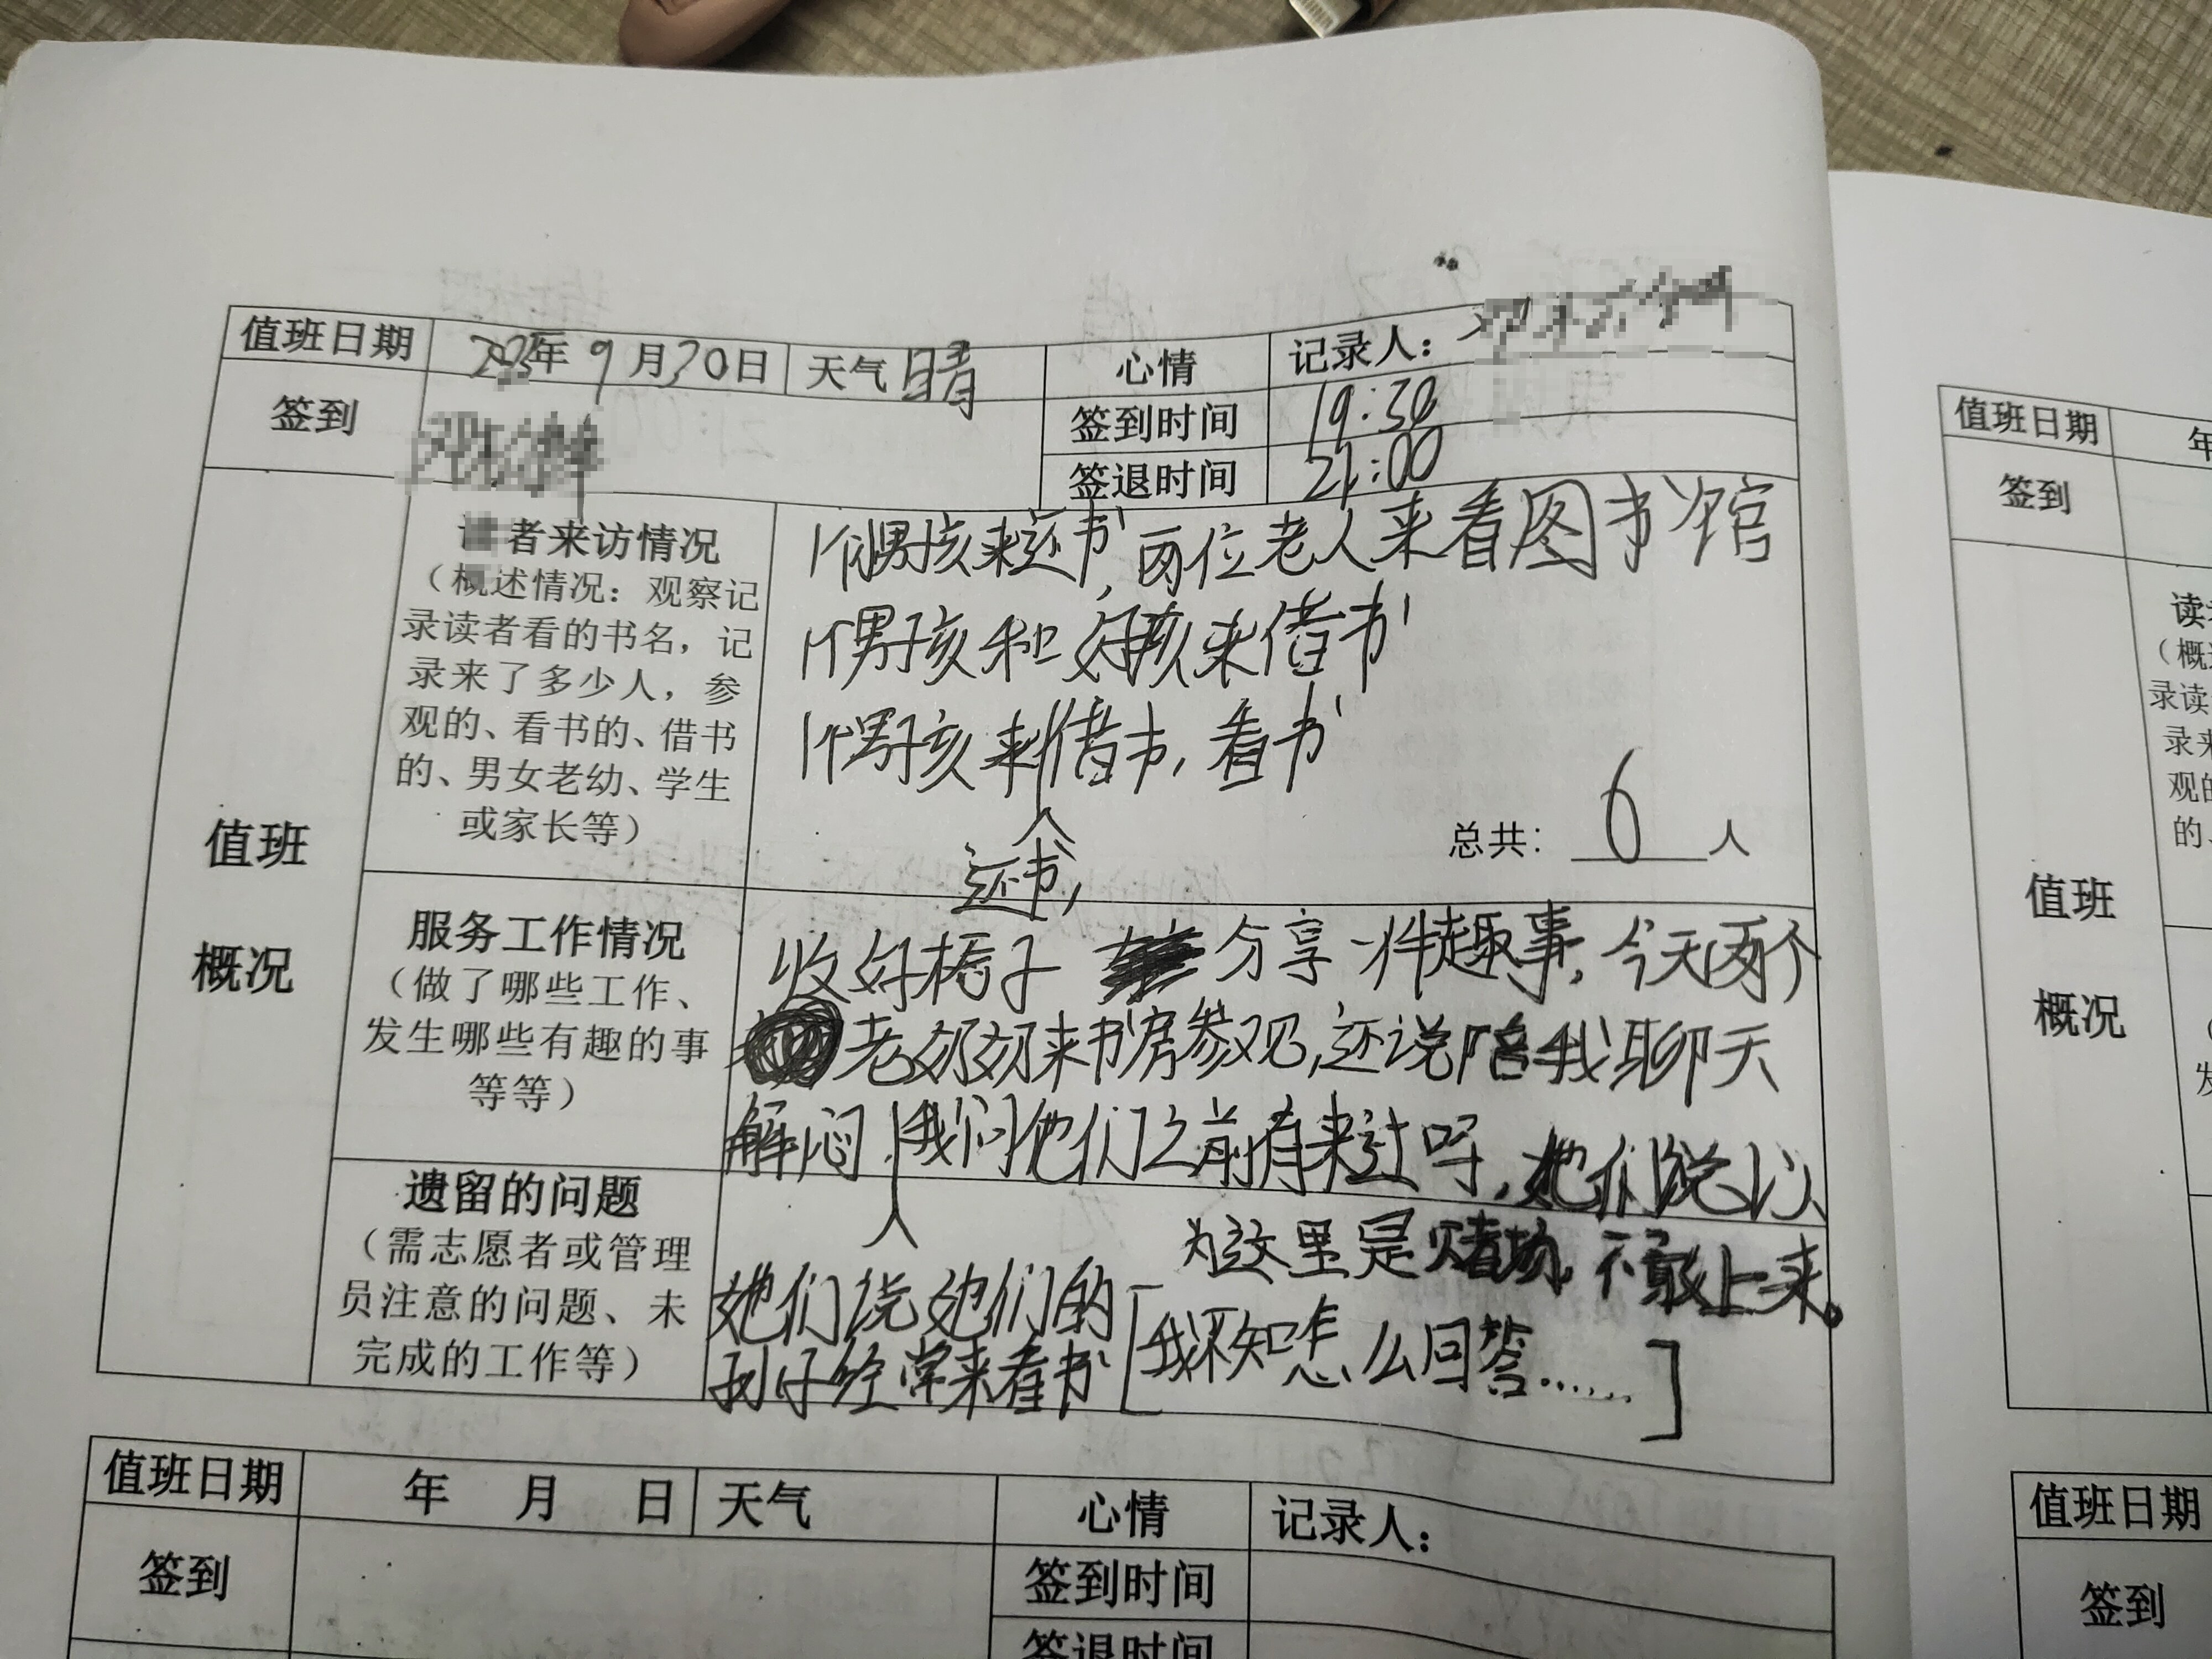 值班日期 2025年9月30日 天气 晴 心情 记录人：
签到 签到时间 19:30
签退时间 21:00
值班概况
读者来访情况
（概述情况：观察记
录读者看的书名，记
录来了多少人，参
观的、看书的、借书
的、男女老幼、学生
或家长等）
1个男孩来还书，两位老人来看图书馆
1个男孩和女孩来借书
1个男孩来借书，看书
还书，
总共：6人
服务工作情况
（做了哪些工作、
发生哪些有趣的事
等等）
收好椅子 分享一件趣事，今天两个
老奶奶来书房参观，还说陪我聊天
解闷，我问他们之前有来过吗，她们说以
为这里是赌场，不敢上来。
遗留的问题
（需志愿者或管理
员注意的问题、未
完成的工作等）
她们说她们的
孙子经常来看书
[我不知怎么回答……]
值班日期 年 月 日 天气 心情 记录人：
签到 签到时间
签退时间
值班日期 年
签到
值班
概况
读
（概
录读
录来
观的
的、
（
发
值班日期
签到